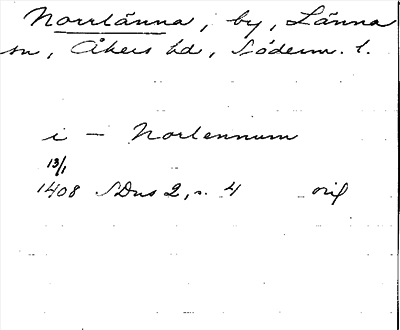 Norrlänna, by, Länna
sn, Åkers hd, Söderm. l.
i – Norlennum
13/1
1408 SDns 2, s. 4 orig